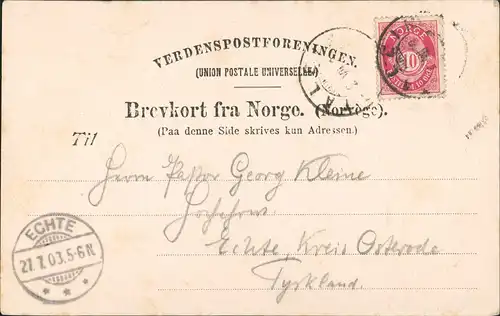 VERDENSPOSTFORENINGEN.
(UNION POSTALE UNIVERSELLE)
NORGE
10
Brevkort fra Norge. (Norvège).
(Paa denne Side skrives kun Adressen.)
Til
Herrn Pastor Georg Kleine
Hochehrw.
Echte, Kreis Osterode
Tyskland.
ECHTE
27.7.03.5-6N.
* * *